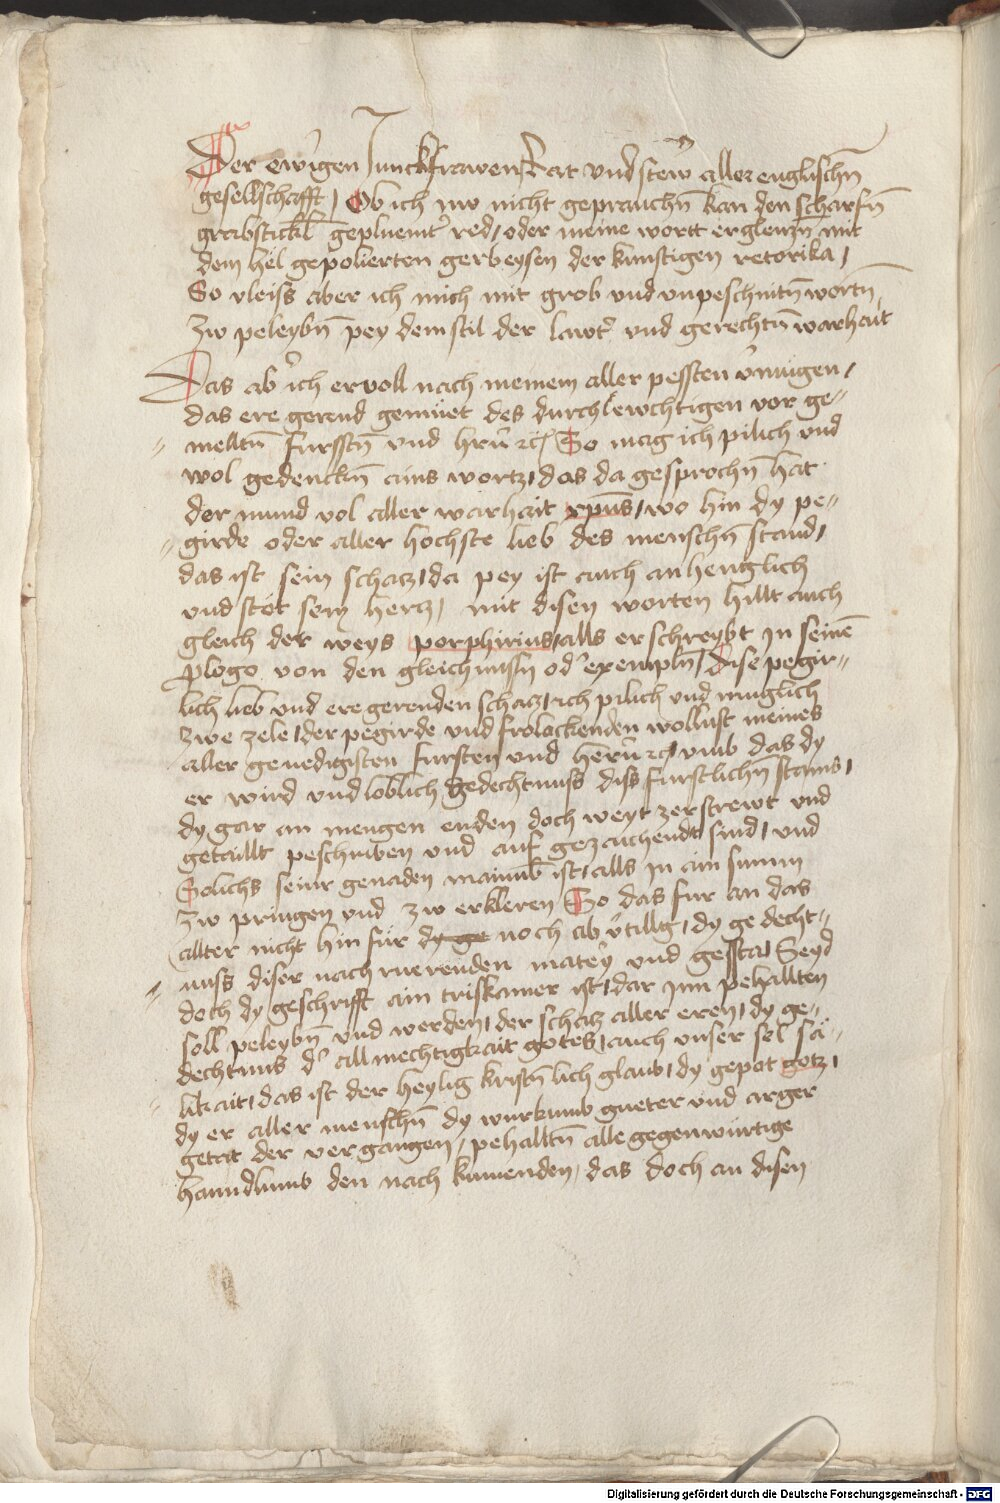 Der ewigen Junckfrawen Rat vnd stew aller englischn̄
gesellschafft / Ob ich nw nicht geprauchn̄ kan den scharfn̄
grabstickl geplúemt' red / oder meine wortt erglenzn̄ mit
dem hel gepolierten gerbeysen der kunstigen retorika /
So vleiss aber ich mich mit grob vnd vnpeschnitn̄ wortn̄
Zw peleybn̄ pey dem stil der lawt' vnd gerechtn̄ warhait
Das ab' ich ervoll nach meinem aller pessten v'mügen /
das ere gerend gemüet des durchlewchtigen vor ge=
melltn̄ Furstn̄ vnd hrn̄ ⁊c̄ So mag ich pilich vnd
wol gedenckn̄ ains wortz / das da gesprochn̄ hat
der mund vol aller warhait xpūs / wo hin dy pe=
girde oder aller hochste lieb des menschn̄ stand /
das ist sein schatz / da pey ist auch anhenglich
vnd stet sein hertz / mit disen worten hillt auch
gleich der weys porphirius / alls er schreybt Jn seinē
plogo von den gleichnusn̄ od' exempln̄ / dise pegir=
lich lieb vnd ere gerenden schatz / ich pilich vnd muglich
zwe zele / der pegirde vnd frolockenden wollust meines
aller genedigisten Fursten vnd herrn̄ ⁊c̄ / vmb das dy
er wird vnd loblich gedechtnuss diss furstlichn̄ stams /
dy gar an mengen enden doch weyt zerstrewt vnd
getaillt peschriben vnd auf gezaichendt sind / vnd
Solichs seinr genaden mainūb ist / alls Jn ain summ
Zw pringen vnd zw erkleren So das fur an das
allter nicht hin für dy ge noch ab v'tillg / dy gedecht=
nuss diser nach ruerenden matery vnd gessta / Seyd
doch dy geschrifft ain triskamer ist / dar Jnn pehallten
soll peleybn̄ vnd werden / der schatz aller eren / dy ge=
dechtnus d' allmechtigkait gotes / auch vnser sel sä=
likait / das ist der heylig kristn̄lich glaub / dy gepot gotz /
dy er aller menschn̄ dy wurkumb gueter vnd arger
getat der vergangen / pehalltn̄ alle gegenwürtige
hanndlumb den nach kumenden / das doch an disen
Digitalisierung gefördert durch die Deutsche Forschungsgemeinschaft - DFG